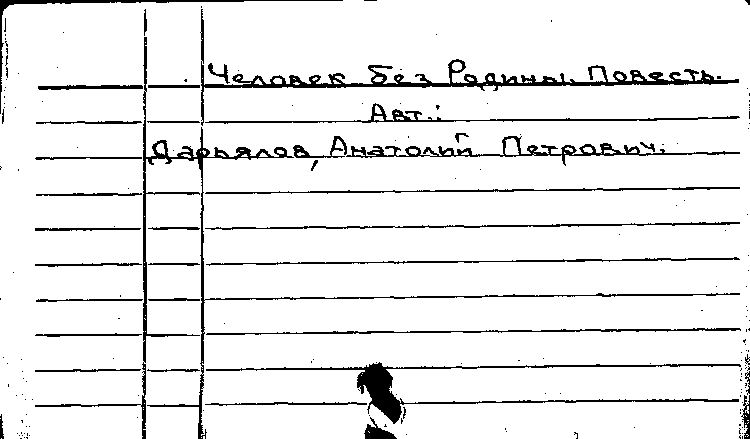 Человек без Родины. Повесть.
Авт.:
Дарьялов, Анатолий Петрович.